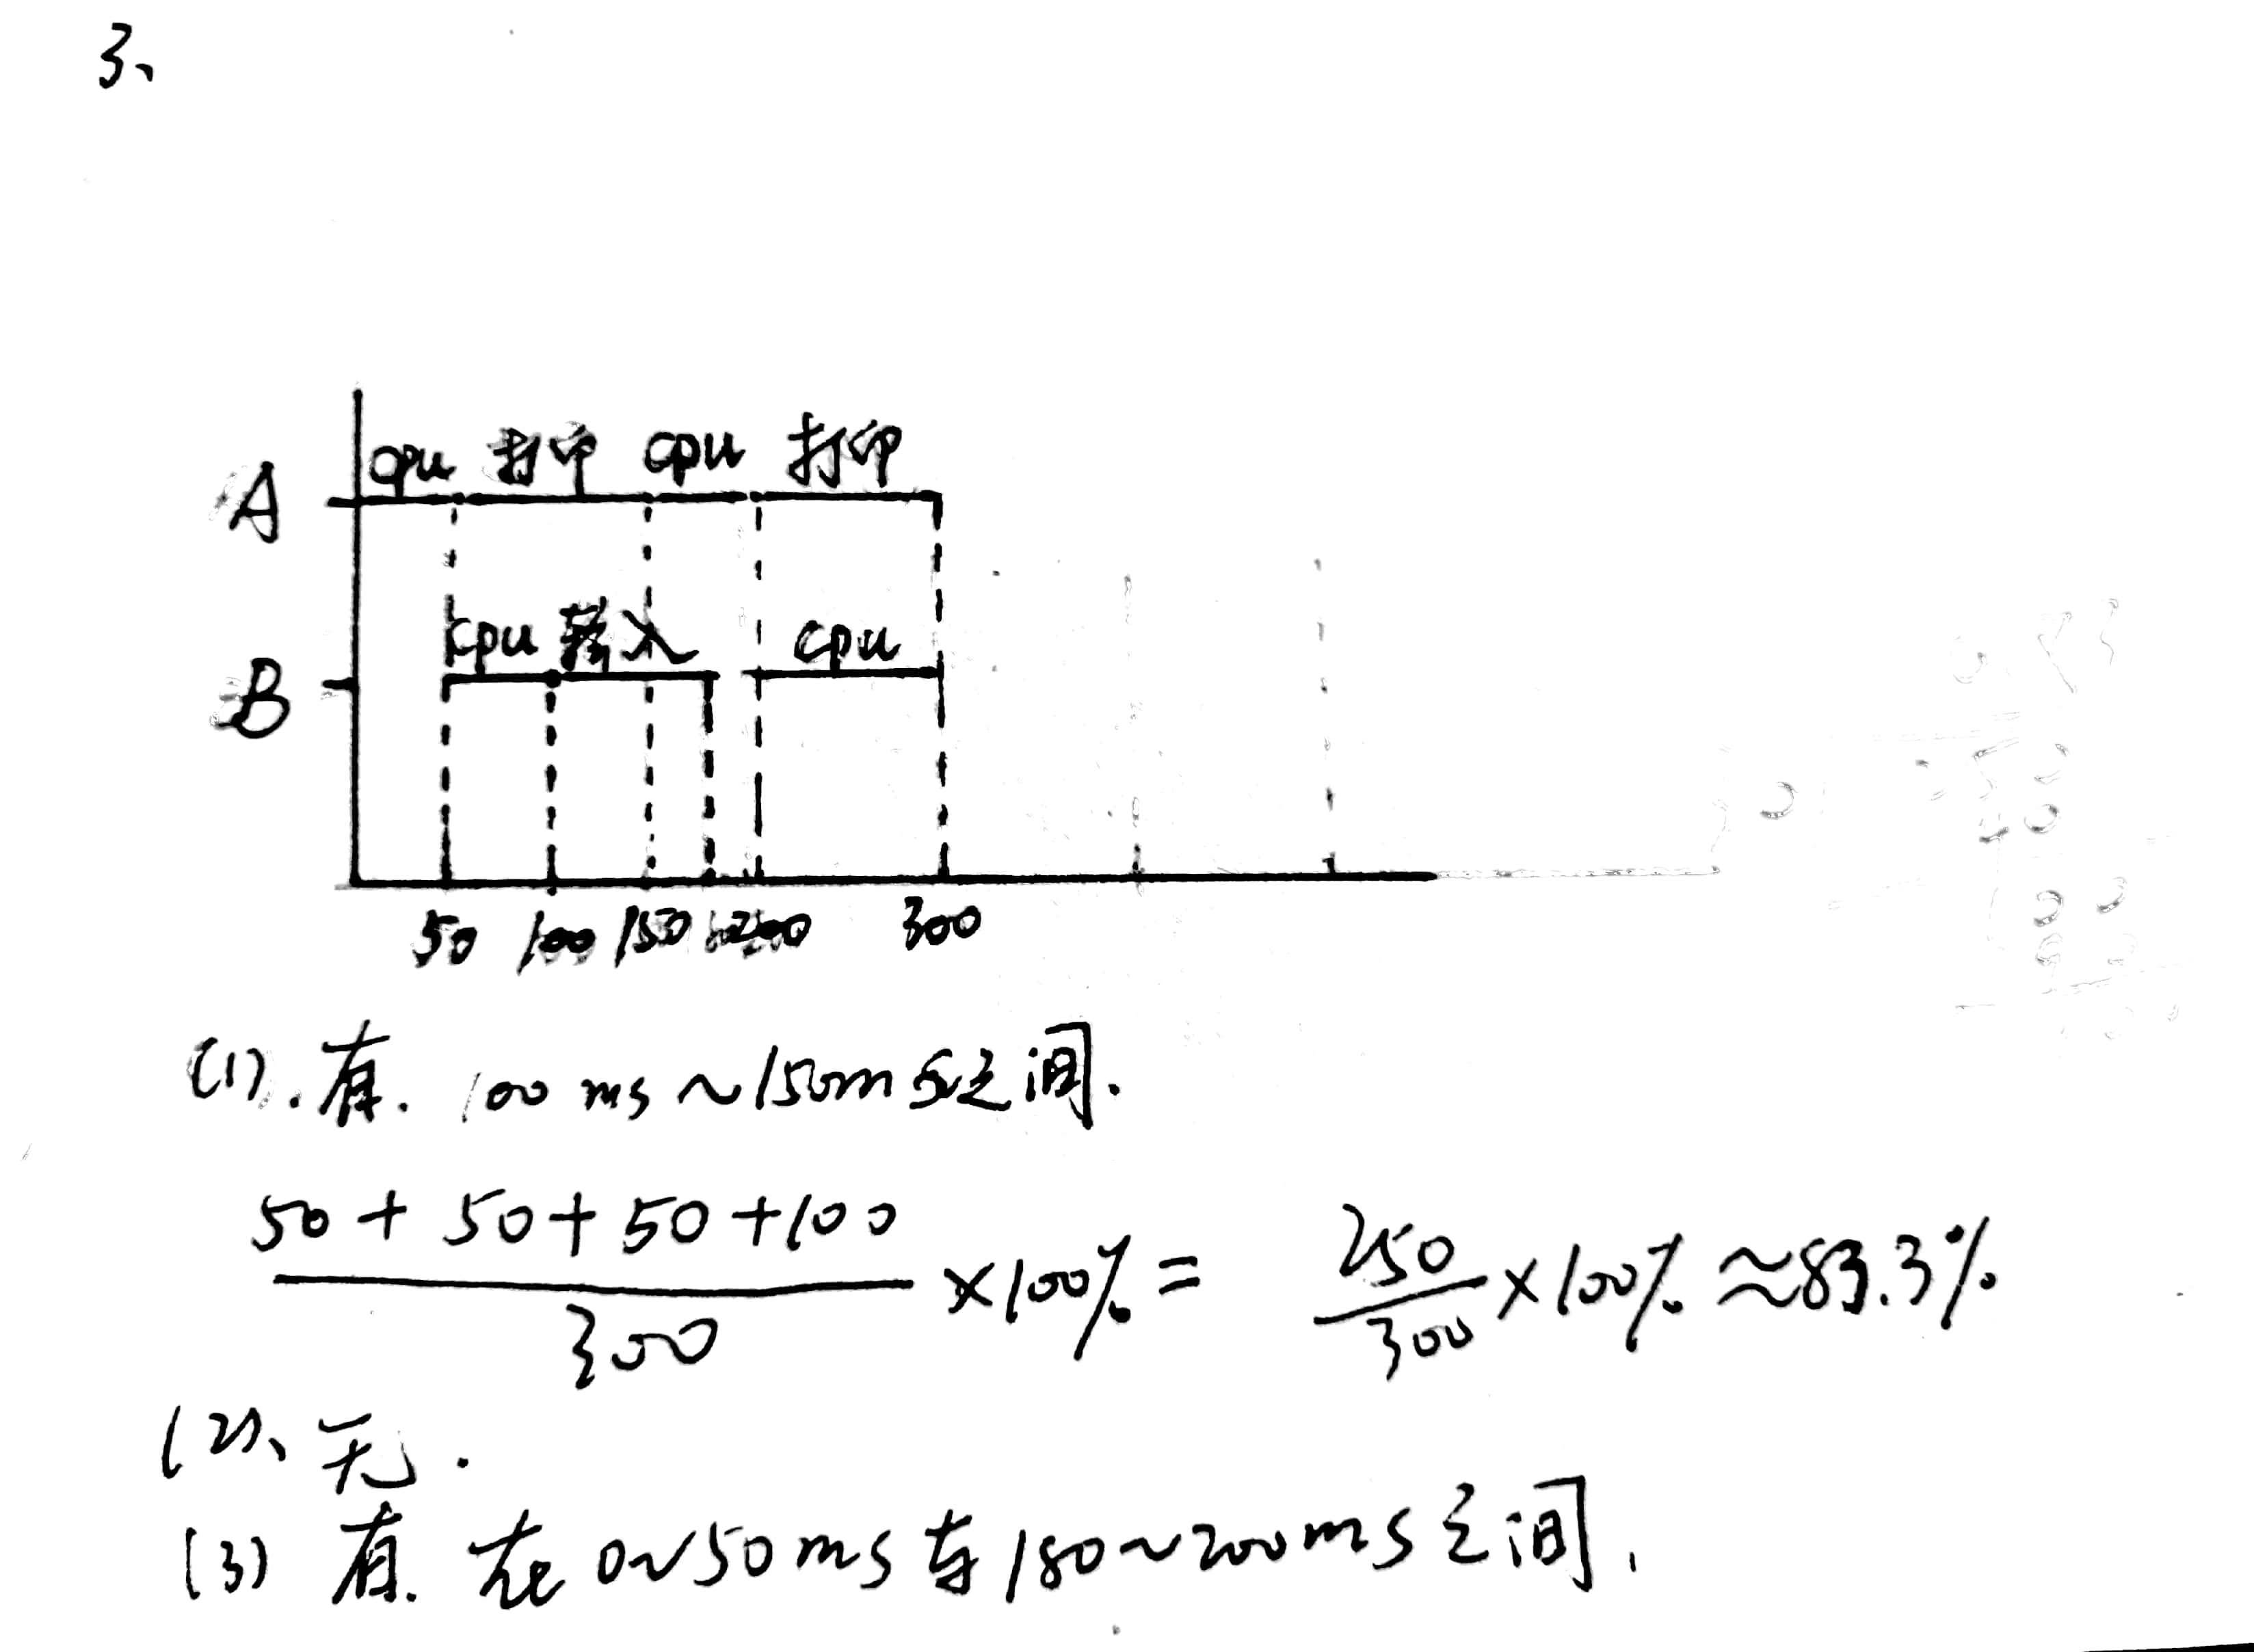 3、
cpu 打印 cpu 打印
A
cpu 输入 cpu
B
50 100 150 200 300
(1). 有. 100 ms ~ 150ms之间.
50 + 50 + 50 + 100
300
×100% =
250
300
×100% ≈83.3%
(2)、无.
(3) 有. 在 0~50ms 与 180~200ms 之间.